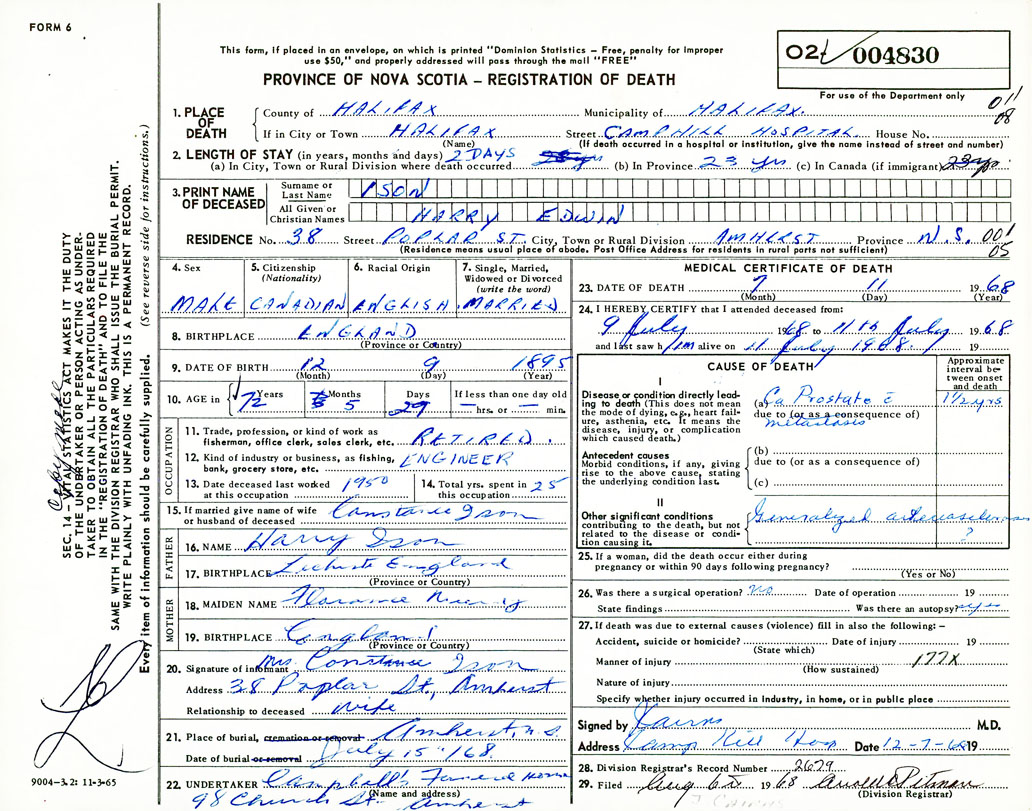 FORM 6
This form, if placed in an envelope, on which is printed "Dominion Statistics – Free, penalty for improper
use $50," and properly addressed will pass through the mail "FREE"
PROVINCE OF NOVA SCOTIA – REGISTRATION OF DEATH
004830
For use of the Department only
011
08
1. PLACE OF DEATH County of HALIFAX Municipality of HALIFAX.
If in City or Town HALIFAX Street CAMPHILL HOSPITAL. House No.
(Name) (If death occurred in a hospital or institution, give the name instead of street and number)
2. LENGTH OF STAY (in years, months and days) 2 DAYS
(a) In City, Town or Rural Division where death occurred (b) In Province 23 yrs (c) In Canada (if immigrant) 23 yrs
3. PRINT NAME OF DECEASED Surname or Last Name ISON
All Given or Christian Names HARRY EDWIN
RESIDENCE No. 38 Street POPLAR ST. City, Town or Rural Division AMHERST Province N.S. 001
05
(Residence means usual place of abode. Post Office Address for residents in rural ports not sufficient)
4. Sex 5. Citizenship (Nationality) 6. Racial Origin 7. Single, Married, Widowed or Divorced (write the word)
MALE CANADIAN ENGLISH MARRIED
8. BIRTHPLACE ENGLAND
(Province or Country)
9. DATE OF BIRTH 12 9 1895
(Month) (Day) (Year)
10. AGE in Years Months Days If less than one day old
72 5 29 — hrs. or — min.
OCCUPATION
11. Trade, profession, or kind of work as
fisherman, office clerk, sales clerk, etc. RETIRED.
12. Kind of industry or business, as fishing,
bank, grocery store, etc. ENGINEER
13. Date deceased last worked at this occupation 1950 14. Total yrs. spent in this occupation 25
15. If married give name of wife
or husband of deceased Constance Ison
FATHER
16. NAME Harry Ison
17. BIRTHPLACE England
(Province or Country)
MOTHER
18. MAIDEN NAME Florance
19. BIRTHPLACE England
(Province or Country)
20. Signature of informant Mrs. Constance Ison
Address 38 Poplar St, Amherst
Relationship to deceased Wife
21. Place of burial, cremation or removal Amherst, N.S.
Date of burial or removal July 15 /68
22. UNDERTAKER Campbell's Funeral Home
(Name and address)
98 Church St. Amherst
MEDICAL CERTIFICATE OF DEATH
23. DATE OF DEATH 7 11 1968
(Month) (Day) (Year)
24. I HEREBY CERTIFY that I attended deceased from:
9 July 1968 to 11th July 1968
and last saw him alive on 11 July 1968 19
CAUSE OF DEATH
Approximate interval between onset and death
I
Disease or condition directly leading to death (This does not mean the mode of dying, e.g., heart failure, asthenia, etc. It means the disease, injury, or complication which caused death.)
(a) Ca Prostate c̄ 1½ yrs
due to (or as a consequence of)
metastasis
Antecedent causes
Morbid conditions, if any, giving rise to the above cause, stating the underlying condition last.
(b)
due to (or as a consequence of)
(c)
II
Other significant conditions
contributing to the death, but not related to the disease or condition causing it.
Generalized
?
25. If a woman, did the death occur either during
pregnancy or within 90 days following pregnancy?
(Yes or No)
26. Was there a surgical operation? No Date of operation 19
State findings Was there an autopsy? yes
27. If death was due to external causes (violence) fill in also the following: –
Accident, suicide or homicide? Date of injury 19
(State which)
Manner of injury 177X
(How sustained)
Nature of injury
Specify whether injury occurred in Industry, in home, or in public place
Signed by M.D.
Address Camp Hill Hosp Date 12-7-68 19
28. Division Registrar's Record Number 2679
29. Filed Aug 6th 1968
(Division Registrar)
SEC. 14 – VITAL STATISTICS ACT MAKES IT THE DUTY
OF THE UNDERTAKER OR PERSON ACTING AS UNDER-
TAKER TO OBTAIN ALL THE PARTICULARS REQUIRED
IN THE "REGISTRATION OF DEATH" AND TO FILE THE
SAME WITH THE DIVISION REGISTRAR WHO SHALL ISSUE THE BURIAL PERMIT.
WRITE PLAINLY WITH UNFADING INK. THIS IS A PERMANENT RECORD.
Every item of information should be carefully supplied. (See reverse side for instructions.)
9004–3.2: 11-3-65